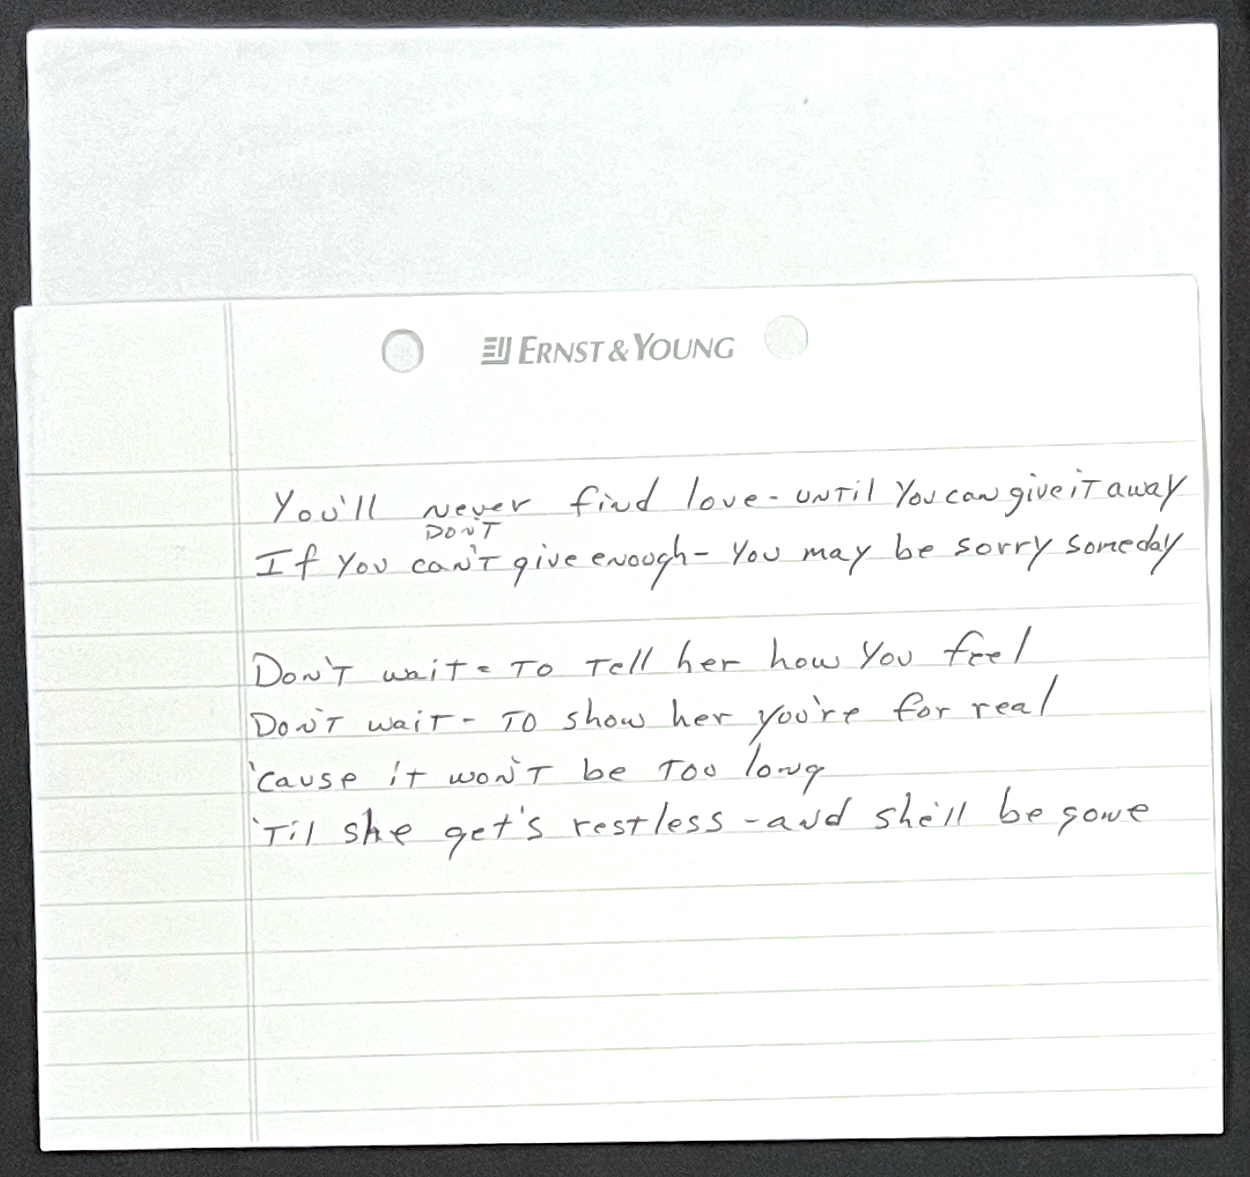 ERNST & YOUNG
You'll never find love - until You can give it away
DON'T
If You can't give enough - You may be sorry someday
Don't wait - To Tell her how You feel
Don't wait - To show her you're for real
'cause it won't be Too long
'Til she get's restless - and she'll be gone